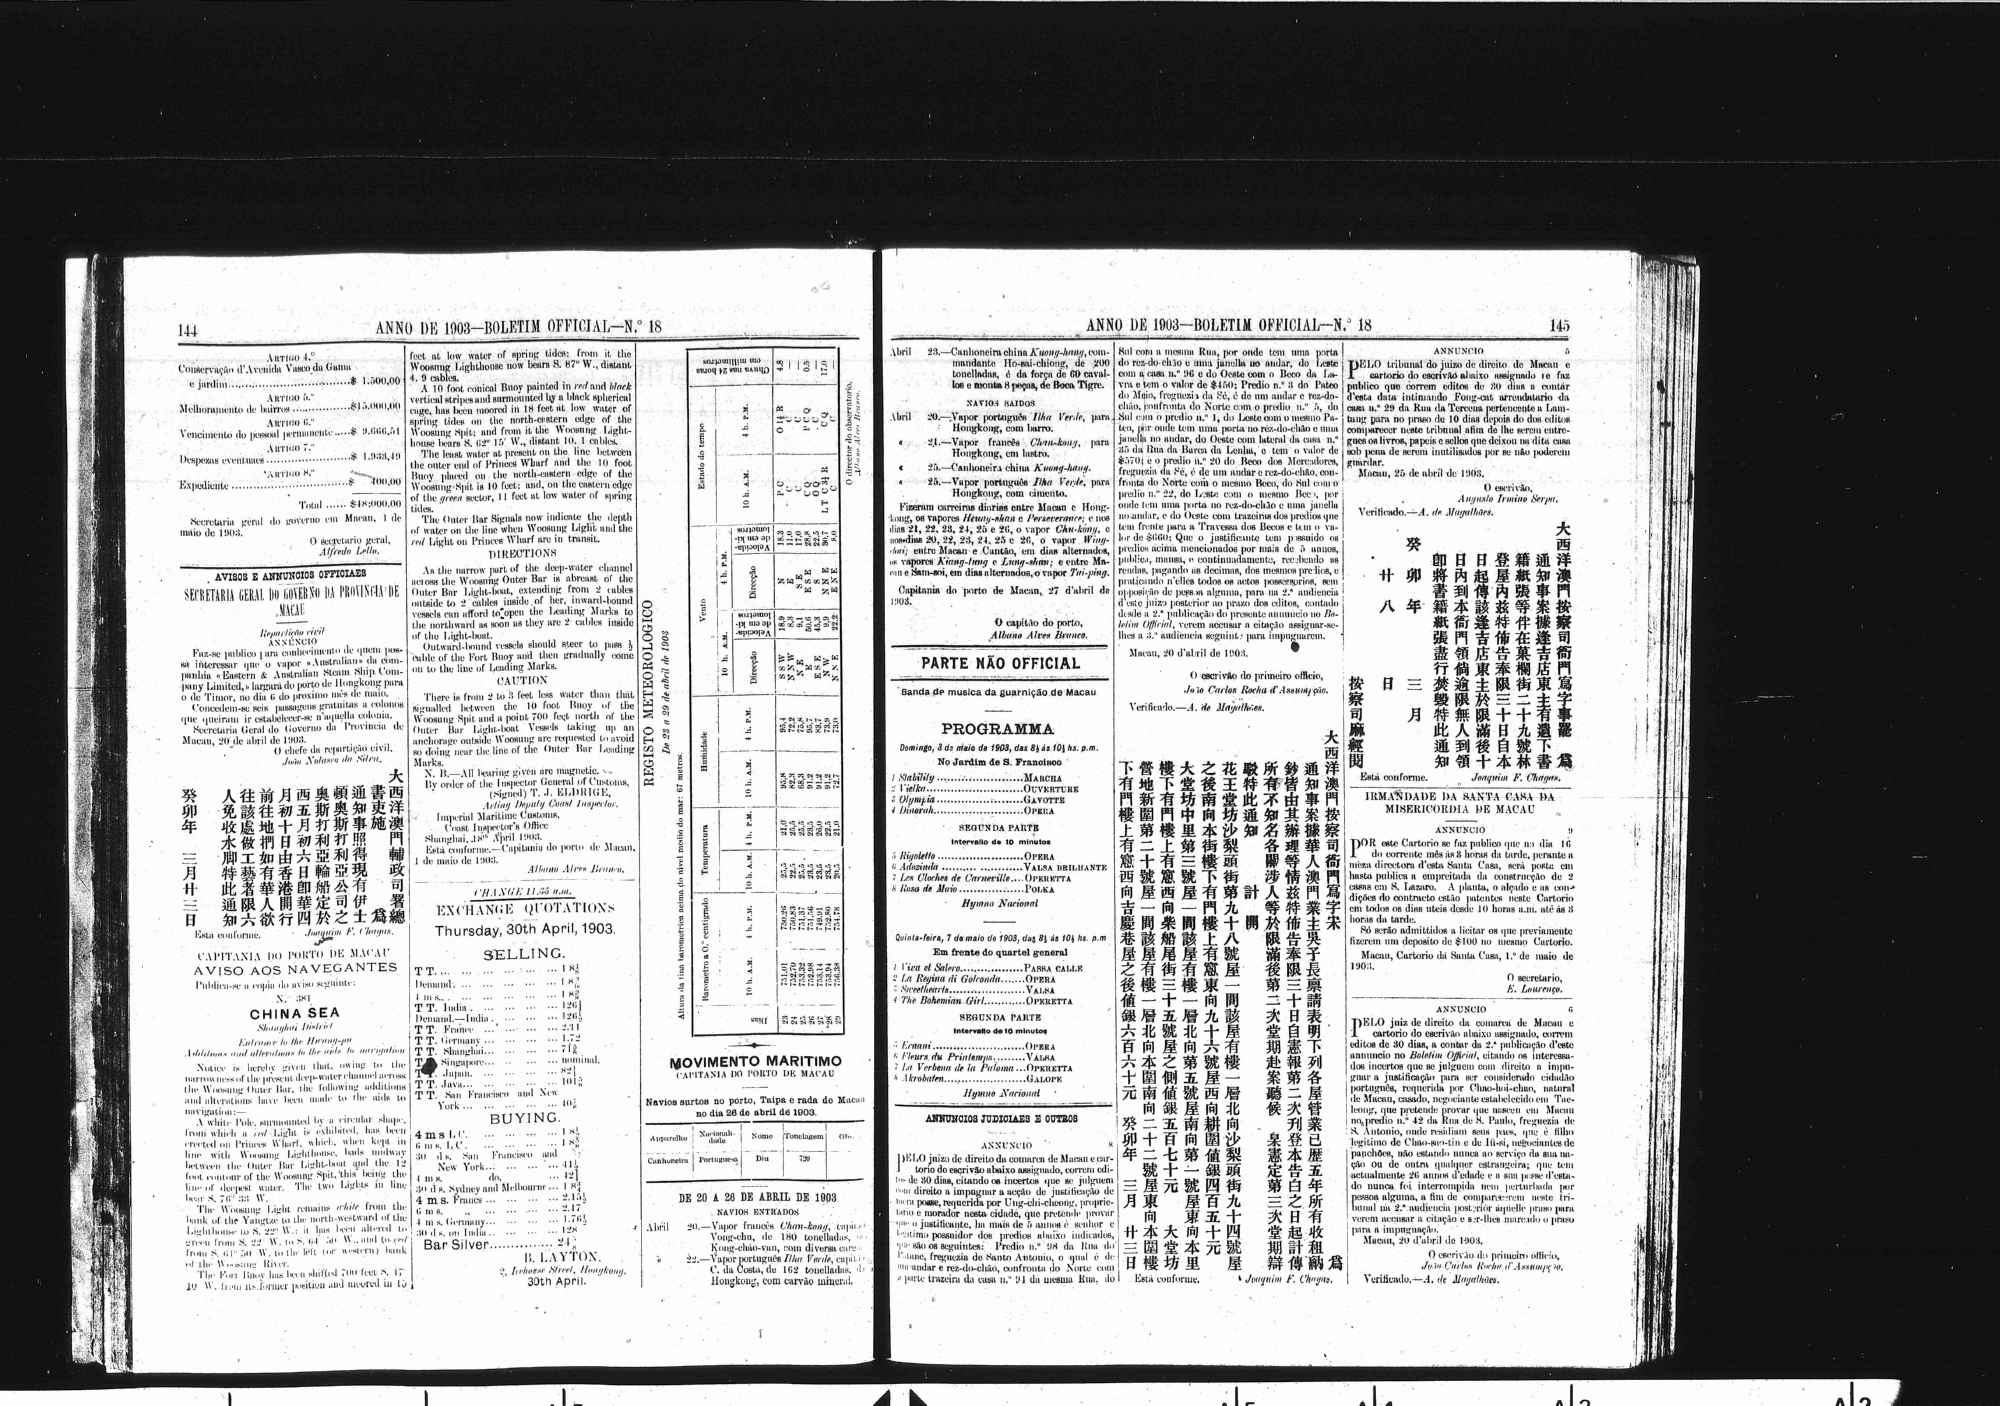 144
ANNO DE 1903—BOLETIM OFFICIAL—N.º 18
ARTIGO 4.º
Conservação d'Avenida Vasco da Gama
e jardim ..............................$ 1.500,00
ARTIGO 5.º
Melhoramento de bairros ...............$15.000,00
ARTIGO 6.º
Vencimento do pessoal permanente.....$ 9.666,51
ARTIGO 7.º
Despezas eventuaes ..................$ 1.933,49
ARTIGO 8.º
Expediente ..........................$ 400,00
Total ...... $48.000,00
Secretaria geral do governo em Macau, 1 de
maio de 1903.
O secretario geral,
Alfredo Lello.
AVISOS E ANNUNCIOS OFFICIAES
SECRETARIA GERAL DO GOVERNO DA PROVINCIA DE
MACAU
Repartição civil
ANNUNCIO
Faz-se publico para conhecimento de quem pos-
sa interessar que o vapor «Australian» da com-
panhia «Eastern & Australian Steam Ship Com-
pany Limited,» largará do porto de Hongkong para
o de Timor, no dia 6 do proximo mês de maio.
Concedem-se seis passagens gratuitas a colonos
que queiram ir estabelecer-se n'aquella colonia.
Secretaria Geral do Governo da Provincia de
Macau, 20 de abril de 1903.
O chefe da repartição civil,
João Nolasco da Silva.
大西洋澳門輔政司署總
書吏施 爲
通知事照得現有伊士
頓奧斯打利亞公司之
奥斯打利亞輪船定於
西五月初六日卽華四
月初十日由香港開行
前往地捫如有華人欲
往該處做工藝者限六
人免收水脚特此通知
癸卯年 三月廿三日
Está conforme. Joaquim F. Chagas.
CAPITANIA DO PORTO DE MACAU
AVISO AOS NAVEGANTES
Publica-se a copia do aviso seguinte:
N.º 381
CHINA SEA
Shanghai District
Entrance to the Hwang-pu
Additions and alterations to the aids to navigation
Notice is hereby given that, owing to the
narrowness of the present deep-water channel across
the Woosung Outer Bar, the following additions
and alterations have been made to the aids to
navigation:—
A white Pole, surmounted by a circular shape,
from which a red Light is exhibited, has been
erected on Princes Wharf, which, when kept in
line with Woosung Lighthouse, leads midway
between the Outer Bar Light-boat and the 12
foot contour of the Woosung Spit, this being the
line of deepest water. The two Lights in line
bear S. 76° 33' W.
The Woosung Light remains white from the
bank of the Yangtze to the north-westward of the
Lighthouse to S. 22° W.; it has been altered to
green from S. 22° W. to S. 61° 50' W., and to red
from S. 61° 50' W. to the left (or western) bank
of the Woosung River.
The Fort Buoy has been shifted 700 feet S. 47°
10' W. from its former position and moored in 15
feet at low water of spring tides; from it the
Woosung Lighthouse now bears S. 87° W., distant
4. 9 cables.
A 10 foot conical Buoy painted in red and black
vertical stripes and surmounted by a black spherical
cage, has been moored in 18 feet at low water of
spring tides on the north-eastern edge of the
Woosung Spit; and from it the Woosung Light-
house bears S. 62° 15' W., distant 10. 1 cables.
The least water at present on the line between
the outer end of Princes Wharf and the 10 foot
Buoy placed on the north-eastern edge of the
Woosung Spit is 10 feet; and, on the eastern edge
of the green sector, 11 feet at low water of spring
tides.
The Outer Bar Signals now indicate the depth
of water on the line when Woosung Light and the
red Light on Princes Wharf are in transit.
DIRECTIONS
As the narrow part of the deep-water channel
across the Woosung Outer Bar is abreast of the
Outer Bar Light-boat, extending from 2 cables
outside to 2 cables inside of her, inward-bound
vessels can afford to open the Leading Marks to
the northward as soon as they are 2 cables inside
of the Light-boat.
Outward-bound vessels should steer to pass ½
cable of the Fort Buoy and then gradually come
on to the line of Leading Marks.
CAUTION
There is from 2 to 3 feet less water than that
signalled between the 10 foot Buoy of the
Woosung Spit and a point 700 feet north of the
Outer Bar Light-boat Vessels taking up an
anchorage outside Woosung are requested to avoid
so doing near the line of the Outer Bar Leading
Marks.
N. B.—All bearing given are magnetic.
By order of the Inspector General of Customs,
(Signed) T. J. ELDRIGE,
Acting Deputy Coast Inspector.
Imperial Maritime Customs,
Coast Inspector's Office
Shanghai, 18th April 1903.
Está conforme.—Capitania do porto de Macau,
1 de maio de 1903.
Albano Alves Branco.
CHANGE 11.55 a.m.
EXCHANGE QUOTATIONS
Thursday, 30th April, 1903.
SELLING.
T T.
Demand.
4 m s.
T T. India
Demand.—India
T T. France
T T. Germany ... 1.72
T T. Shanghai
T T. Singapore ... nominal.
T T. Japan.
T T. Java
T T. San Francisco and New
York
BUYING.
4 m s L C.
6 m s. L C.
30 d s. San Francisco and
New York
4 m s. do.
30 d s. Sydney and Melbourne
4 m s. France
6 m s. „ ... 2.17
4 m s. Germany
30 d s. on India ... 128
Bar Silver
B. LAYTON.
2, Icehouse Street, Hongkong.
30th April.
REGISTO METEOROLOGICO
De 23 a 29 de abril de 1903
Altura da tina barometrica acima do nivel medio do mar: 67 metros.
Dias
Barometro a 0.º centigrado
10 h. A.M.
4 h. P.M.
Temperatura
10 h. A.M.
4 h. P.M.
Humidade
10 h. A.M.
4 h. P.M.
Vento
10 h. A.M.
Direcção
Velocida-
de em ki-
lometros
4 h. P.M.
Direcção
Velocida-
de em ki-
lometros
Estado do tempo
10 h. A.M.
4 h. P.M.
Chuva nas 24 horas
em millimetros
O director do observatorio,
Albano Alves Branco.
MOVIMENTO MARITIMO
CAPITANIA DO PORTO DE MACAU
Navios surtos no porto, Taipa e rada de Macau
no dia 26 de abril de 1903.
Apparelho Nacionali-
dade Nome Tonelagem
Canhoneira Portuguesa Diu 720
DE 20 A 26 DE ABRIL DE 1903
NAVIOS ENTRADOS
Abril 20.—Vapor francês Chan-kong,
Vong-chu, de 180 tonelladas,
Kong-cháo-van, com diversa
» 22.—Vapor português Ilha Verde,
C. da Costa, de 162 tonelladas,
Hongkong, com carvão mineral.
ANNO DE 1903—BOLETIM OFFICIAL—N.º 18
145
Abril 23.—Canhoneira china Kuong-hang, com-
mandante Ho-sai-chiong, de 200
tonelladas, é da força de 60 caval-
los e monta 8 peças, de Boca Tigre.
NAVIOS SAIDOS
Abril 20.—Vapor português Ilha Verde, para
Hongkong, com barro.
« 21.—Vapor francês Chan-kong, para
Hongkong, em lastro.
« 25.—Canhoneira china Kuong-hang.
« 25.—Vapor português Ilha Verde, para
Hongkong, com cimento.
Fizeram carreiras diarias entre Macau e Hong-
kong, os vapores Heung-shan e Perseverance; e nos
dias 21, 22, 23, 24, 25 e 26, o vapor Chu-kong, e
nos dias 20, 22, 23, 24, 25 e 26, o vapor Wing-
chai; entre Macau e Cantão, em dias alternados,
os vapores Kiang-tung e Lung-shan; e entre Ma-
cau e Sam-soi, em dias alternados, o vapor Tai-ping.
Capitania do porto de Macau, 27 d'abril de
1903.
O capitão do porto,
Albano Alves Branco.
PARTE NÃO OFFICIAL
Banda de musica da guarnição de Macau
PROGRAMMA
Domingo, 3 de maio de 1903, das 8½ ás 10½ hs. p.m.
No Jardim de S. Francisco
1 Stability ........................MARCHA
2 Vielka...........................OUVERTURE
3 Olympia.........................GAVOTTE
4 Dinorah..........................OPERA
SEGUNDA PARTE
Intervallo de 10 minutos
5 Rigoletto ........................OPERA
6 Adozinda ........................VALSA BRILHANTE
7 Les Cloches de Corneville....OPERETTA
8 Rosa de Maio ...................POLKA
Hymno Nacional
Quinta-feira, 7 de maio de 1903, das 8½ ás 10½ hs. p.m
Em frente do quartel general
1 Viva el Salero..................PASSA CALLE
2 La Regina di Golconda.......OPERA
3 Sweethearts.....................VALSA
4 The Bohemian Girl...........OPERETTA
SEGUNDA PARTE
Intervallo de 10 minutos
5 Ernani...........................OPERA
6 Fleurs du Printemps..........VALSA
7 La Verbena de la Paloma ...OPERETTA
8 Akrobaten.......................GALOPE
Hymno Nacional
ANNUNCIOS JUDICIAES E OUTROS
ANNUNCIO 8
PELO juizo de direito da comarca de Macau e car-
torio do escrivão abaixo assignado, correm edi-
tos de 30 dias, citando os incertos que se julguem
com direito a impugnar a acção de justificação de
mera posse, requerida por Ung-chi-cheong, proprie-
tario e morador nesta cidade, que pretende provar
que o justificante, ha mais de 5 annos é senhor e
legitimo possuidor dos predios abaixo indicados,
que são os seguintes: Predio n.º 98 da Rua do
Patane, freguezia de Santo Antonio, o qual é de
um andar e rez-do-chão, confronta do Norte com
a parte trazeira da casa n.º 94 da mesma Rua, do
Sul com a mesma Rua, por onde tem uma porta
do rez-do-chão e uma janella no andar, do Leste
com a casa n.º 96 e do Oeste com o Beco da La-
vra e tem o valor de $450; Predio n.º 3 do Pateo
do Meio, freguezia da Sé, é de um andar e rez-do-
chão, confronta do Norte com o predio n.º 5, do
Sul com o predio n.º 1, do Leste com o mesmo Pa-
teo, por onde tem uma porta no rez-do-chão e uma
janella no andar, do Oeste com lateral da casa n.º
35 da Rua da Barca da Lenha, e tem o valor de
$570; e o predio n.º 20 do Beco dos Mercadores,
freguezia da Sé, é de um andar e rez-do-chão, con-
fronta do Norte com o mesmo Beco, do Sul com o
predio n.º 22, do Leste com o mesmo Beco, por
onde tem uma porta no rez-do-chão e uma janella
no andar, e do Oeste com trazeiras dos predios que
tem frente para a Travessa dos Becos e tem o va-
lor de $660; Que o justificante tem possuido os
predios acima mencionados por mais de 5 annos,
publica, mansa, e continuadamente, recebendo as
rendas, pagando as decimas, dos mesmos predios, e
praticando n'elles todos os actos possessorios, sem
opposição de pessoa alguma, para na 2.ª audiencia
d'este juizo posterior ao prazo dos editos, contado
desde a 2.ª publicação do presente annuncio no Bo-
letim Official, verem accusar a citação assignar-se-
lhes a 3.ª audiencia seguinte para impugnarem.
Macau, 20 d'abril de 1903.
O escrivão do primeiro officio,
João Carlos Rocha d'Assumpção.
Verificado.—A. de Magalhães.
大西洋澳門按察司衙門寫字宋 爲
通知事案據華人澳門業主吳子長禀請表明下列各屋管業已歴五年所有收租納
鈔皆由其辦理等情兹特佈告奉限三十日自憲報第二次刋登本告白之日起計傳
所有不知名各關涉人等於限滿後第二次堂期赴案聽候 臬憲定第三次堂期辯
駁特此通知 計開
花王堂坊沙梨頭街第九十八號屋一間該屋有樓一層北向沙梨頭街九十四號屋
之後南向本街樓下有門樓上有窻東向九十六號屋西向耕圍値銀四百五十元
大堂坊中里第三號屋一間該屋有樓一層北向第五號屋南向第一號屋東向本里
樓下有門樓上有窻西向柴船尾街三十五號屋之側値銀五百七十元 大堂坊
營地新圍第二十號屋一間該屋有樓一層北向本圍南向二十二號屋東向本圍樓
下有門樓上有窻西向吉慶巷屋之後値銀六百六十元 癸卯年 三月 廿三日
Está conforme. Joaquim F. Chagas.
ANNUNCIO 5
PELO tribunal do juizo de direito de Macau e
cartorio do escrivão abaixo assignado se faz
publico que correm editos de 30 dias a contár
d'esta data intimando Fong-cat arrendatario da
casa n.º 29 da Rua da Tercena pertencente a Lam-
tung para no praso de 10 dias depois do dos editos
comparecer neste tribunal afim de lhe serem entre-
gues os livros, papeis e sellos que deixou na dita casa
sob pena de serem inutilisados por se não poderem
guardar.
Macau, 25 de abril de 1903.
O escrivão,
Augusto Irmino Serpa.
Verificado.—A. de Magalhães.
大西洋澳門按察司衙門寫字事罷 爲
通知事案據逢吉店東主有遺下書
籍紙張等件在菓欄街二十九號林
登屋內兹特佈告奉限三十日自本
日起傳該逢吉店東主於限滿十
日內到本衙門領倘逾限無人到領
卽將書籍紙張盡行焚毁特此通知
癸卯年 三月
廿八 日
按察司麻經閱
Está conforme. Joaquim F. Chagas.
IRMANDADE DA SANTA CASA DA
MISERICORDIA DE MACAU
ANNUNCIO 9
POR este Cartorio se faz publico que no dia 16
do corrente mês ás 8 horas da tarde, perante a
mêza directora d'esta Santa Casa, será posta em
hasta publica a empreitada da construcção de 2
casas em S. Lazaro. A planta, o alçado e as con-
dições do contracto estão patentes neste Cartorio
em todos os dias uteis desde 10 horas a.m. até ás 3
horas da tarde.
Só serão admittidos a licitar os que previamente
fizerem um deposito de $100 no mesmo Cartorio.
Macau, Cartorio da Santa Casa, 1.º de maio de
1903.
O secretario,
E. Lourenço.
ANNUNCIO 6
PELO juiz de direito da comarca de Macau e
cartorio do escrivão abaixo assignado, correm
editos de 30 dias, a contar da 2.ª publicação d'este
annuncio no Boletim Official, citando os interessa-
dos incertos que se julguem com direito a impu-
gnar a justificação para ser considerado cidadão
português, requerida por Chao-hoi-chao, natural
de Macau, casado, negociante estabelecido em Tac-
leong, que pretende provar que nasceu em Macau
no predio n.º 42 da Rua de S. Paulo, freguezia de
S. Antonio, onde residiam seus paes, que é filho
legitimo de Chao-suo-tin e de Iü-si, negociantes de
panchões, não estando nunca ao serviço da sua na-
ção ou de outra qualquer estrangeira; que tem
actualmente 26 annos d'edade e a sua posse d'esta-
do nunca foi interrompida nem perturbada por
pessoa alguma, a fim de comparecerem neste tri-
bunal na 2.ª audiencia posterior áquelle praso para
verem accusar a citação e ser-lhes marcado o praso
para a impugnação.
Macau, 20 d'abril de 1903.
O escrivão do primeiro officio,
João Carlos Rocha d'Assumpção.
Verificado.—A. de Magalhães.